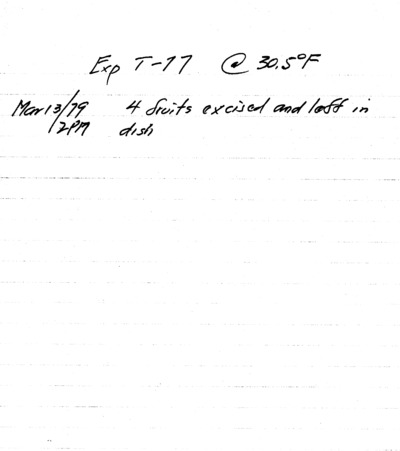 Exp T-77 @ 30.5°F
Mar 13/79 4 fruits excised and left in
12PM dish